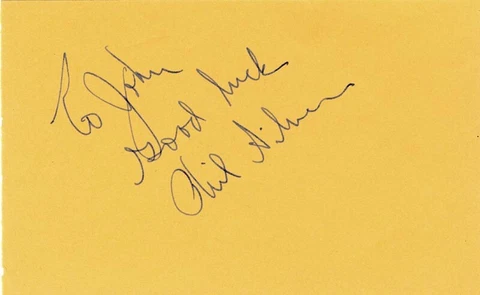 To John
Good luck
Phil Silvers